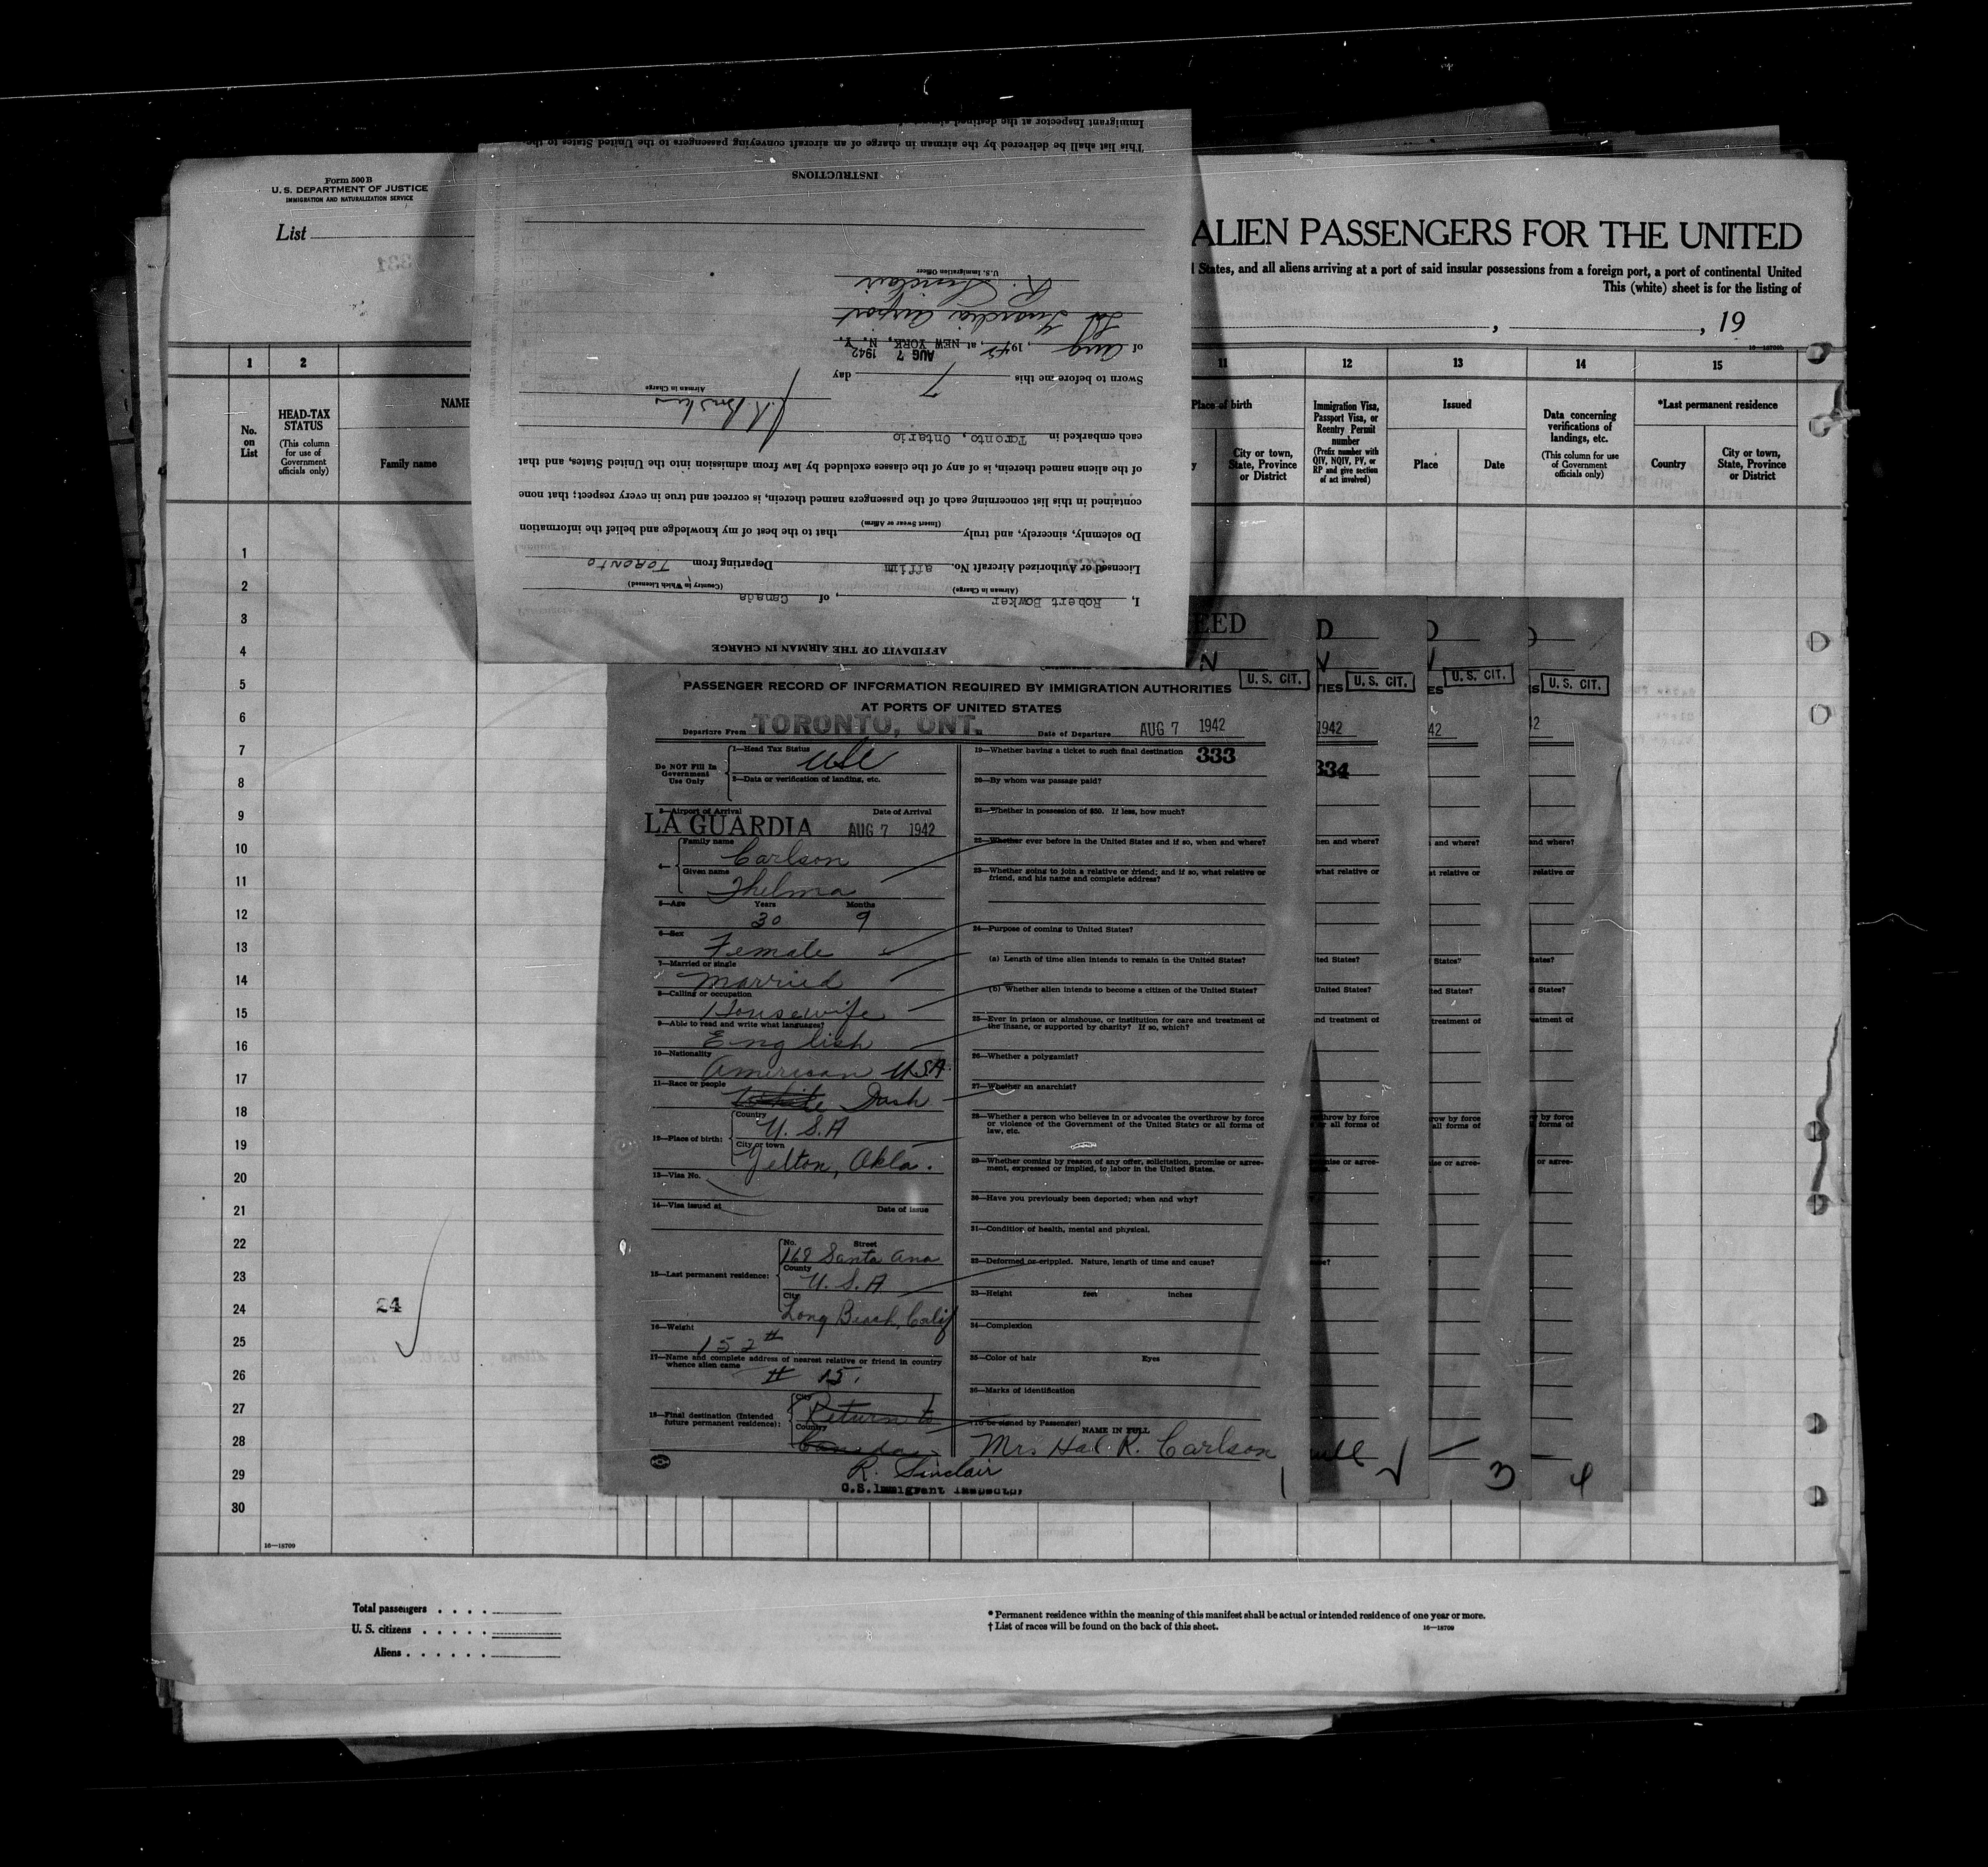 Form 500 B
U. S. DEPARTMENT OF JUSTICE
IMMIGRATION AND NATURALIZATION SERVICE
List
ALIEN PASSENGERS FOR THE UNITED
States, and all aliens arriving at a port of said insular possessions from a foreign port, a port of continental United
This (white) sheet is for the listing of
, 19
16—18709b
1
2
11
12
13
14
15
No. on List
HEAD-TAX STATUS
(This column for use of Government officials only)
NAME
Family name
Place of birth
City or town, State, Province or District
Immigration Visa, Passport Visa, or Reentry Permit number
(Prefix number with QIV, NQIV, PV, or RP and give section of act involved)
Issued
Place
Date
Data concerning verifications of landings, etc.
(This column for use of Government officials only)
*Last permanent residence
Country
City or town, State, Province or District
1
2
3
4
5
6
7
8
9
10
11
12
13
14
15
16
17
18
19
20
21
22
23
24
25
26
27
28
29
30
24
16—18709
Total passengers
U. S. citizens
Aliens
* Permanent residence within the meaning of this manifest shall be actual or intended residence of one year or more.
† List of races will be found on the back of this sheet.
16—18709
AFFIDAVIT OF THE AIRMAN IN CHARGE
I, Robert Bowker, of Canada
(Airman in Charge) (Country in Which Licensed)
Licensed or Authorized Aircraft No. affirm Departing from TORONTO
Do solemnly, sincerely, and truly that to the best of my knowledge and belief the information
(Insert Swear or Affirm)
contained in this list concerning each of the passengers named therein, is correct and true in every respect; that none
of the aliens named therein, is of any of the classes excluded by law from admission into the United States, and that
each embarked in Toronto, Ontario
Airman in Charge
Sworn to before me this 7 day
AUG 7 1942
of Aug, 1942, at NEW YORK, N. Y.
La Guardia Airport
R. Sinclair
U.S. Immigration Officer
INSTRUCTIONS
This list shall be delivered by the airman in charge of an aircraft conveying passengers to the United States to the
Immigrant Inspector at the destined airport
EED
N
PASSENGER RECORD OF INFORMATION REQUIRED BY IMMIGRATION AUTHORITIES
U. S. CIT.
AT PORTS OF UNITED STATES
Departure From TORONTO, ONT. Date of Departure AUG 7 1942
Do NOT Fill In Government Use Only
1—Head Tax Status
USC
2—Data or verification of landing, etc.
3—Airport of Arrival Date of Arrival
LA GUARDIA AUG 7 1942
4— Family name
Carlson
Given name
Thelma
5—Age Years Months
30 9
6—Sex
Female
7—Married or single
Married
8—Calling or occupation
Housewife
9—Able to read and write what languages?
English
10—Nationality
American USA
11—Race or people
White Dash
12—Place of birth: Country
U. S. A
City or town
Okla.
13—Visa No.
14—Visa issued at Date of issue
15—Last permanent residence: No. Street
168 Santa Ana
County
U. S. A
City
Long Beach, Calif
16—Weight
152 #
17—Name and complete address of nearest relative or friend in country whence alien came
# 15.
18—Final destination (Intended future permanent residence): City
Return to
Country
Canada
R. Sinclair
U.S. Immigrant Inspector
19—Whether having a ticket to such final destination
333
20—By whom was passage paid?
21—Whether in possession of $50. If less, how much?
22—Whether ever before in the United States and if so, when and where?
23—Whether going to join a relative or friend; and if so, what relative or friend, and his name and complete address?
24—Purpose of coming to United States?
(a) Length of time alien intends to remain in the United States?
(b) Whether alien intends to become a citizen of the United States?
25—Ever in prison or almshouse, or institution for care and treatment of the insane, or supported by charity? If so, which?
26—Whether a polygamist?
27—Whether an anarchist?
28—Whether a person who believes in or advocates the overthrow by force or violence of the Government of the United States or all forms of law, etc.
29—Whether coming by reason of any offer, solicitation, promise or agreement, expressed or implied, to labor in the United States.
30—Have you previously been deported; when and why?
31—Condition of health, mental and physical.
32—Deformed or crippled. Nature, length of time and cause?
33—Height feet inches
34—Complexion
35—Color of hair Eyes
36—Marks of identification
(To be signed by Passenger)
NAME IN FULL
Mrs Hal. R. Carlson
1
U. S. CIT.
1942
334
U. S. CIT.
42
3
U. S. CIT.
4